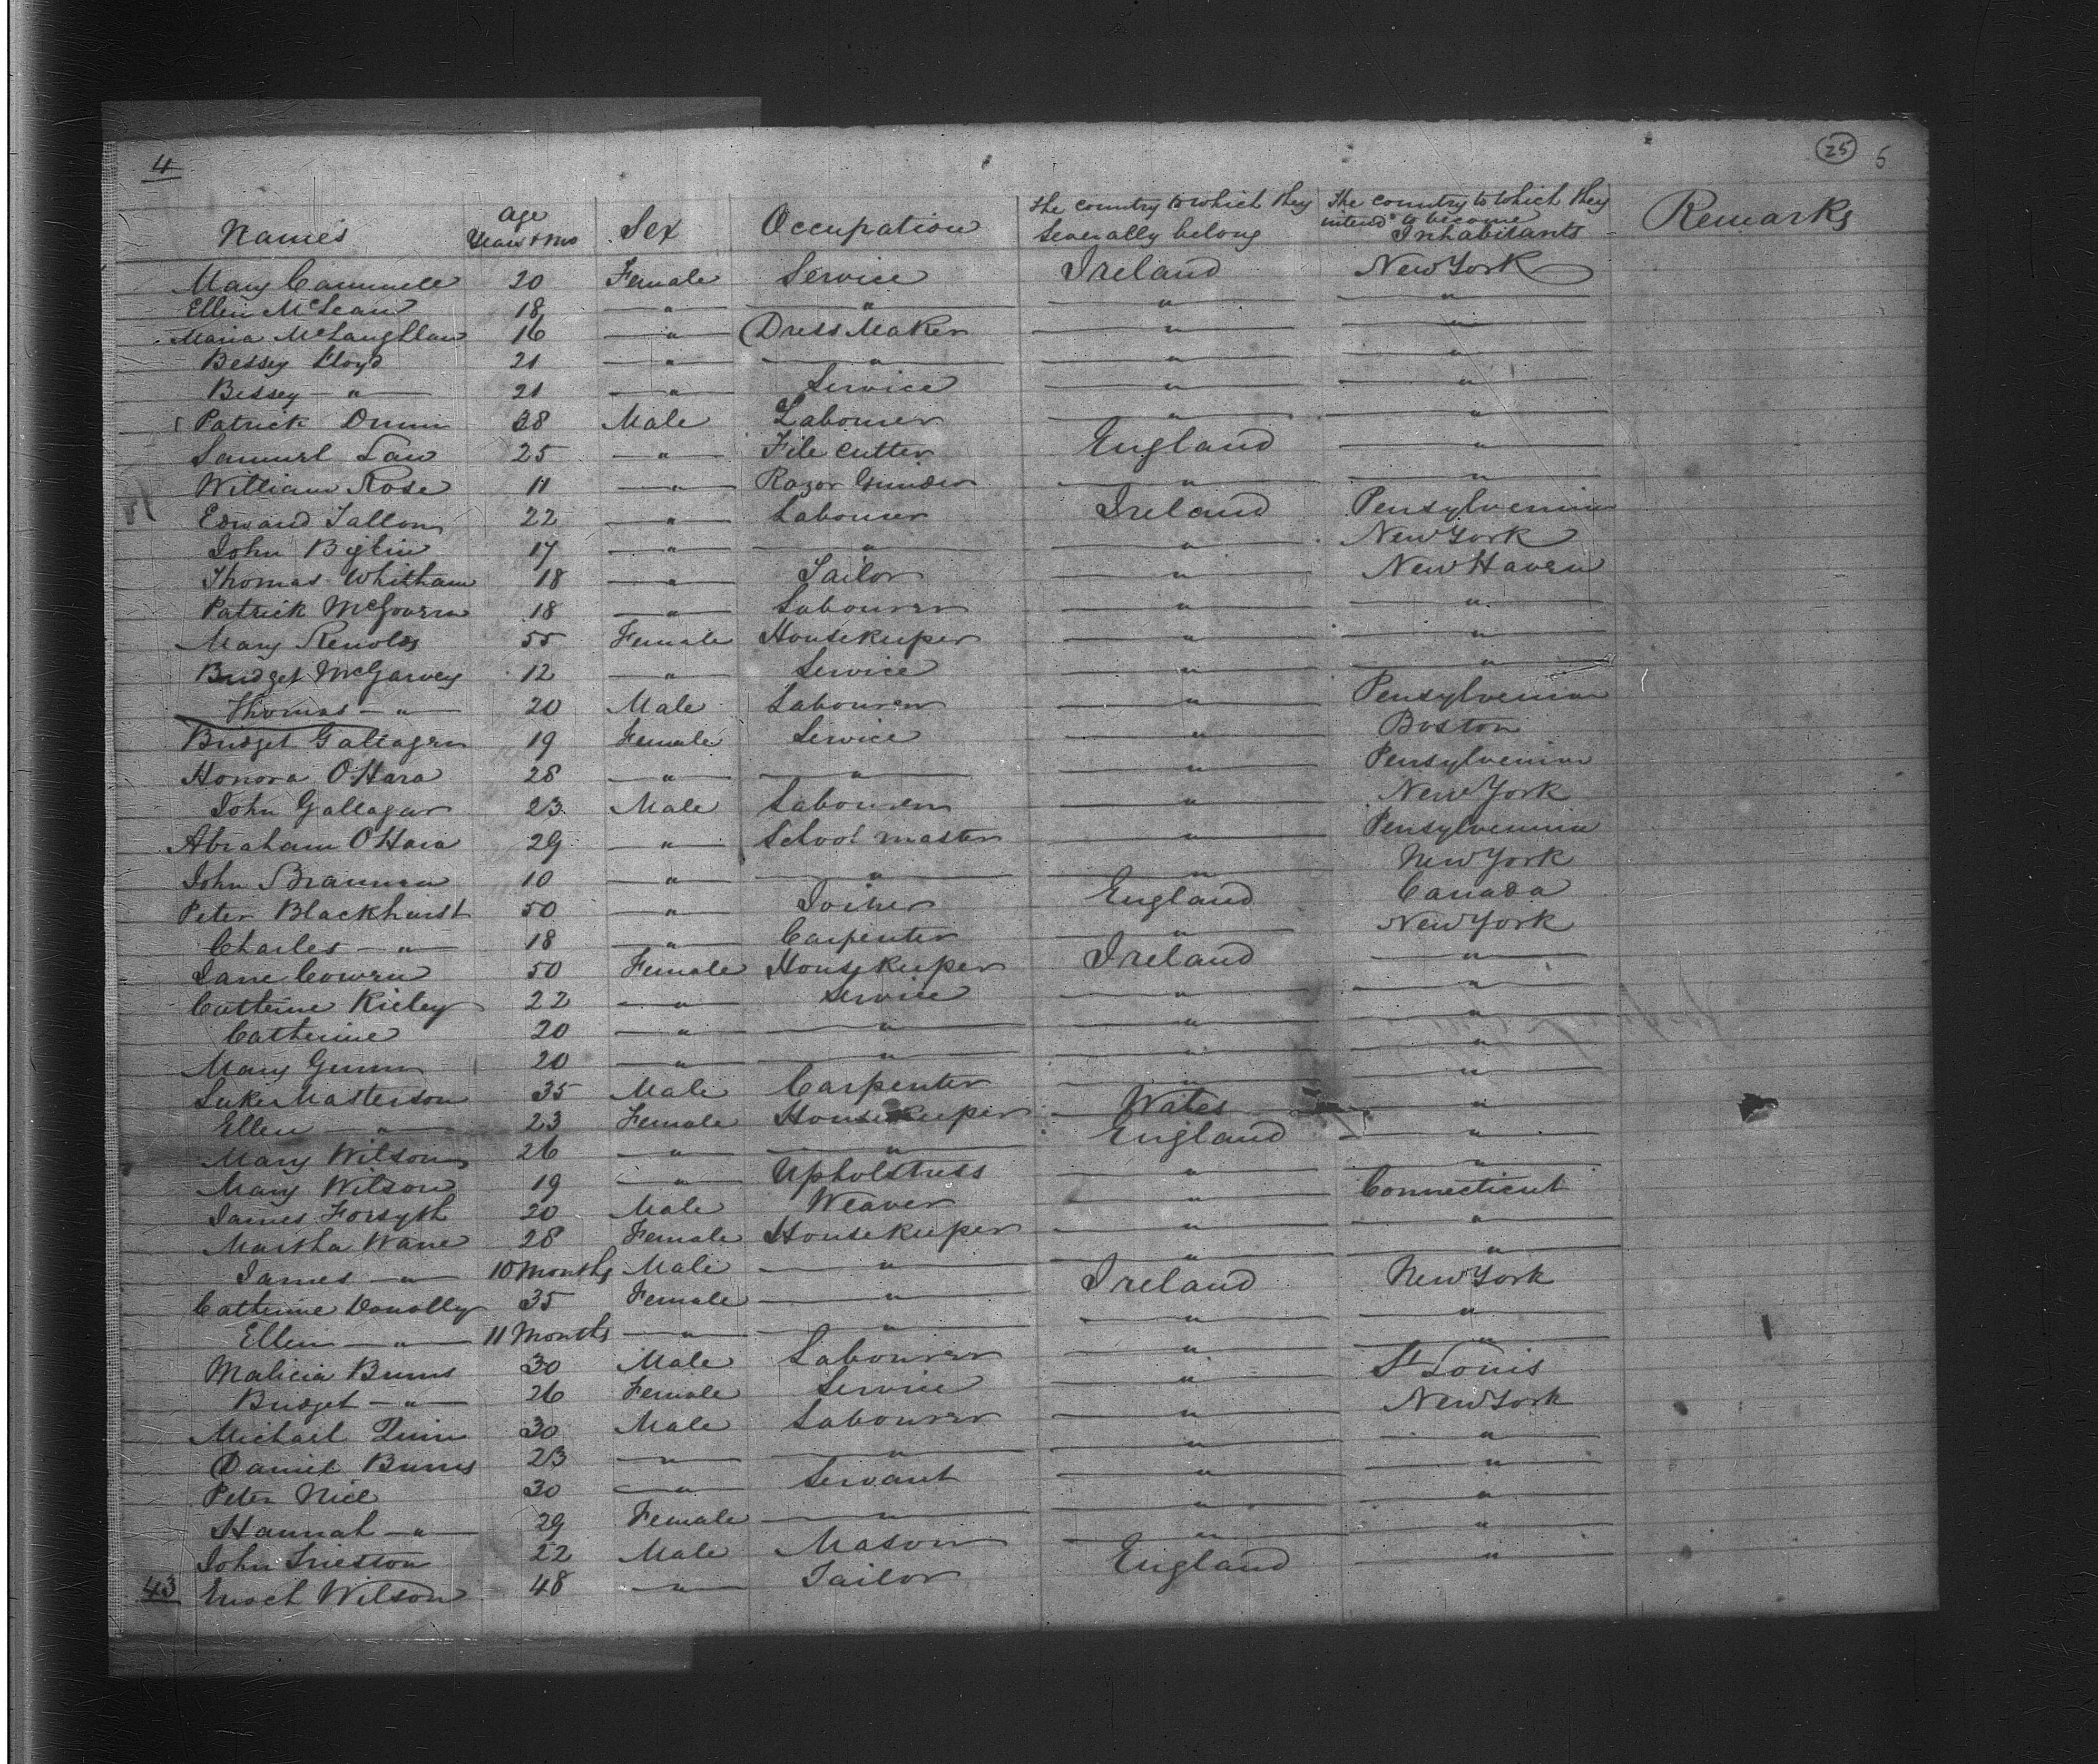 4 25 5
Names Age Years & Mos Sex Occupation The country to which they severally belong The country to which they intend to become Inhabitants Remarks
Mary Cammell 20 Female Service Ireland New York
Ellen McLean 18 " " " "
Maria McLaughlan 16 " Dress Maker " "
Bessey Lloyd 21 " " " "
Bessey " 21 " Service " "
Patrick Dunn 38 Male Labourer " "
Samuel Law 25 " File Cutter England "
William Rose 11 " Razor Grinder " "
Edward Tallon 22 " Labourer Ireland Pensylvenia
John Biglin 17 " " " New York
Thomas Whitham 18 " Tailor " New Haven
Patrick McGovern 18 " Labourer " "
Mary Renolds 55 Female Housekeeper " "
Bridget McGarvey 12 " Service " "
Thomas " 20 Male Labourer " Pensylvenia
Bridget Gallagen 19 Female Service " Boston
Honora O'Hara 28 " " " Pensylvenia
John Gallagar 23 Male Labourer " New York
Abraham O'Hara 29 " School master " Pensylvenia
John Brannon 10 " " " New York
Peter Blackhurst 50 " Joiner England Canada
Charles " 18 " Carpenter " New York
Jane Cowen 50 Female Housekeeper Ireland "
Catterine Rieley 22 " Service " "
Catherine 20 " " " "
Mary Gunn 20 " " " "
Luke Masterson 35 Male Carpenter " "
Ellen " 23 Female Housekeeper Wales "
Mary Wilson 26 " " England "
Mary Wilson 19 " Upholstress " "
James Forsyth 20 Male Weaver " Connecticut
Martha Wane 28 Female Housekeeper " "
James " 10 Months Male " " "
Catherine Donolly 35 Female " Ireland New York
Ellen " 11 Months " " " "
Malicia Burns 30 Male Labourer " "
Bridget " 26 Female Service " St Louis
Michael Quin 30 Male Labourer " New York
Daniel Burns 23 " " " "
Peter Niel 30 " Servant " "
Hannah " 29 Female " " "
John Trieston 22 Male Mason " "
43 Enoch Wilson 48 " Tailor England "